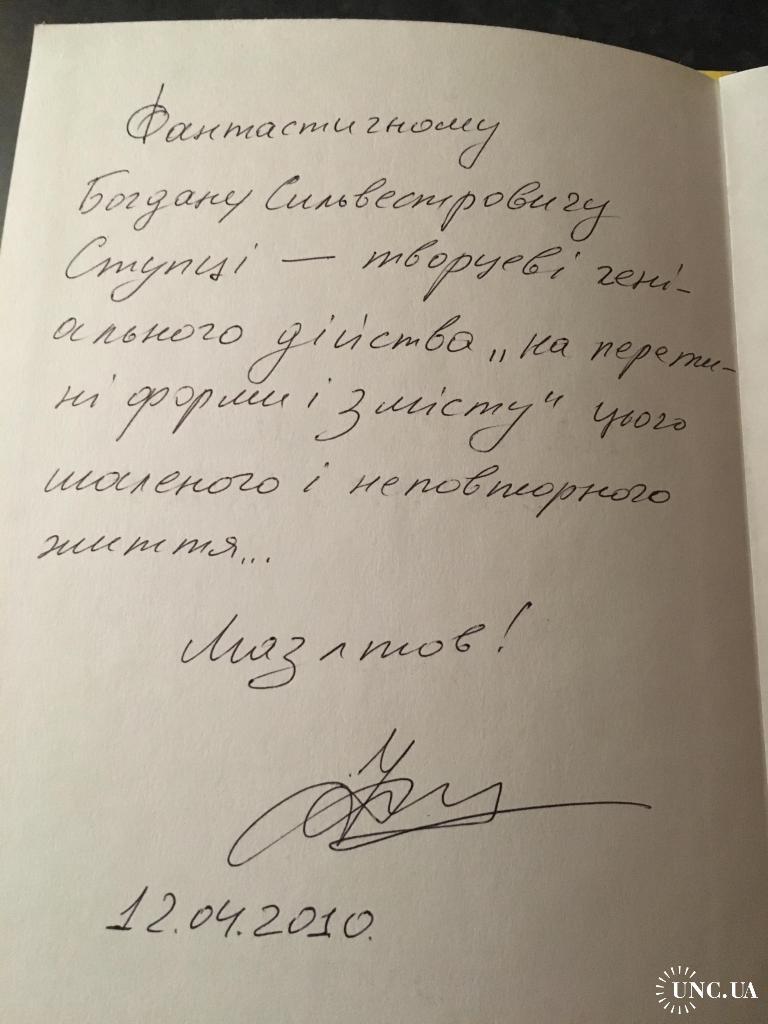 Фантастичному
Богдану Сильвестровичу
Ступці — творцеві гені-
ального дійства „на перети-
ні форми і змісту“ цього
шаленого і неповторного
життя...
Мазл тов!
12.04.2010.
UNC.UA